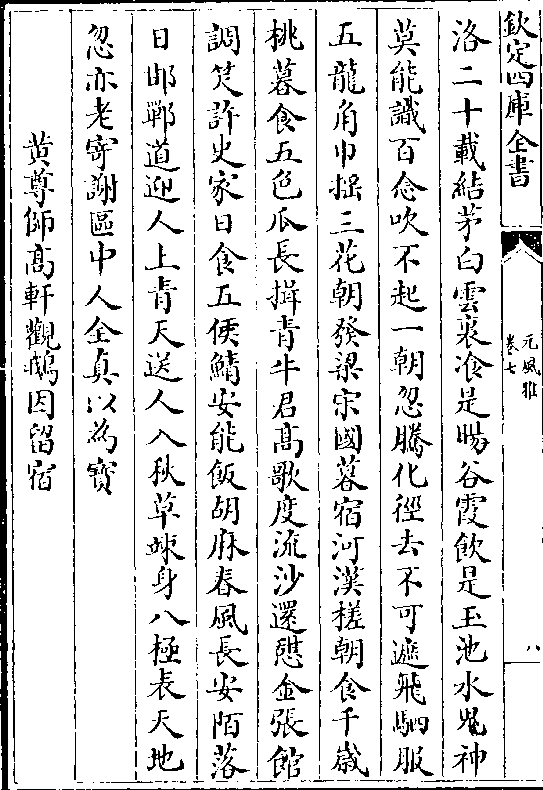 欽定四庫全書
元風雅
卷七
八
洛二十載結茅白雲裏飡是暘谷霞飲是玉池水鬼神
莫能識百念吹不起一朝忽騰化徑去不可遮飛駟服
五龍角巾揺三花朝發梁宋國暮宿河漢槎朝食千歲
桃暮食五色瓜長揖青牛君髙歌度流沙還憇金張館
調笑許史家日食五侯鯖安能飯胡麻春風長安陌落
日邯鄲道迎人上青天送人入秋草竦身八極表天地
忽亦老寄謝區中人全真以為寳
黄尊師髙軒觀鵝因留宿